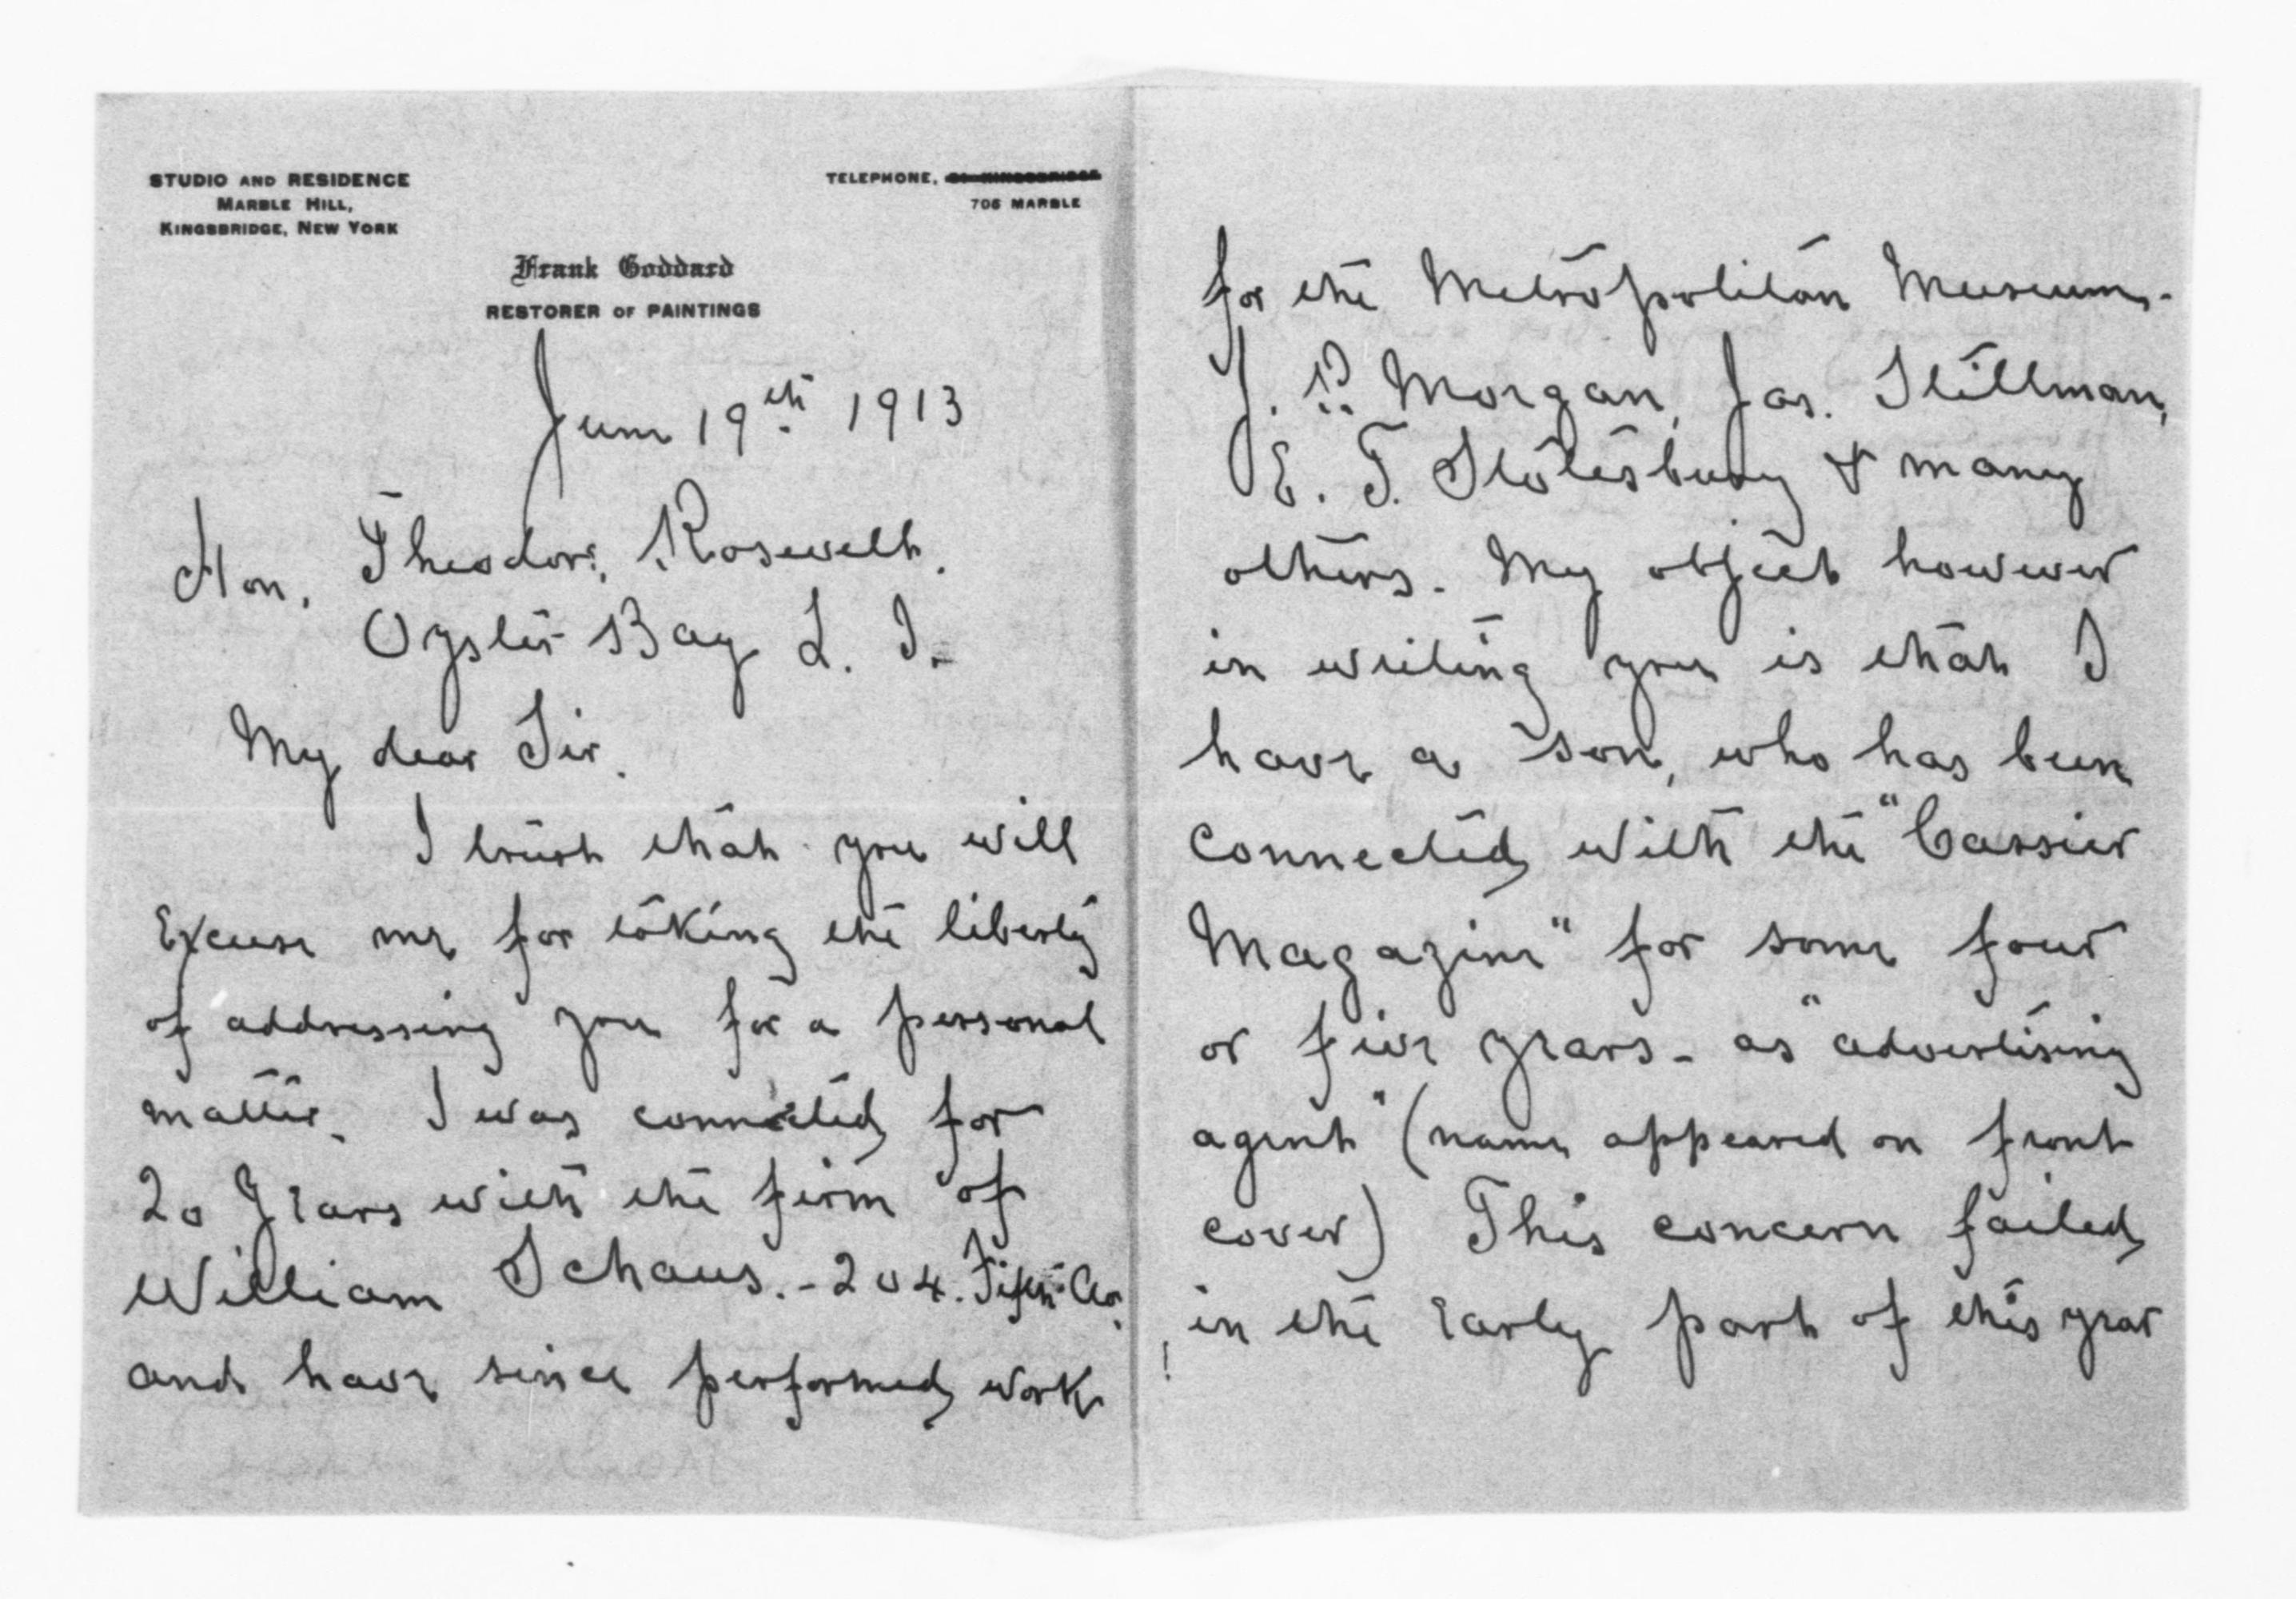 STUDIO AND RESIDENCE
MARBLE HILL,
KINGSBRIDGE, NEW YORK
TELEPHONE,
706 MARBLE
Frank Goddard
RESTORER OF PAINTINGS
June 19th 1913
Hon. Theodore Rosevelt.
Oyster Bay L. I.
My dear Sir.
I trust that you will
Excuse me for taking the liberty
of addressing you for a personal
matter. I was connected for
20 Years with the firm of
William Schaus. - 204. Fifth Av.
and have since performed work
for the Metropolitan Museum. -
J. P. Morgan, Jas. Stillman,
E. T. Stotesbury & many
others. My object however
in writing you is that I
have a son, who has been
connected with the "Cassier
Magazine" for some four
or five years - as "advertising
agent" (name appeared on front
cover) This concern failed
in the Early part of this year